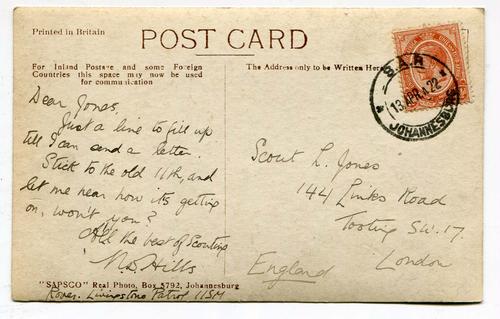 Printed in Britain
POST CARD
For Inland Postage and some Foreign
Countries this space may now be used
for communication
The Address only to be Written Here
S.A.R
13 APR 22
JOHANNESBURG
Dear Jones,
Just a line to fill up
till I can send a letter.
Stick to the old 11th, and
let me hear how it's getting
on, won't you?
All the best of Scouting
Hills
Scout L. Jones
144 Links Road
Tooting S.W.17.
London
England
"SAPSCO" Real Photo, Box 5792, Johannesburg
Rover. Livingstone Patrol 11SM